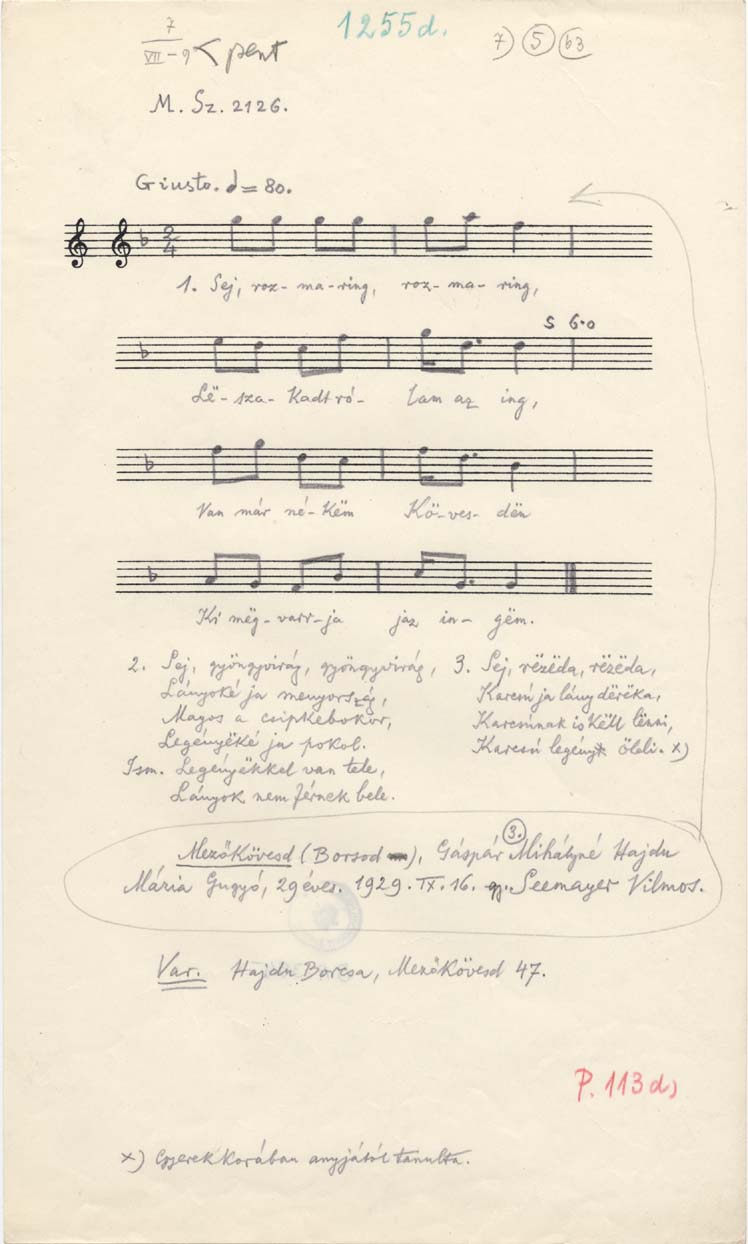 7
VII-9 < pent
1255d.
7) 5 b3
M. Sz. 2126.
Giusto. = 80.
2
4
1. Sej, roz- ma- ring, roz- ma- ring,
S 6.0
Lë- sza- kadt ró- lam az ing,
Van már né- këm Kö- ves- dën
Ki mëg- varr- ja jaz in- gëm.
2. Sej, gyöngyvirág, gyöngyvirág,
Lányoké ja menyország,
Magos a csipkebokor,
Legényëké ja pokol.
Ism. Legényëkkel van tele,
Lányok nem férnek bele.
3. Sej, rëzëda, rëzëda,
Karcsú ja lány dërëka,
Karcsúnak is këll lënni,
Karcsú legény öleli. x)
3.
Mezőkövesd (Borsod), Gáspár Mihályné Hajdu
Mária Gugyó, 29 éves. 1929. IX. 16. gy. Seemayer Vilmos.
Var. Hajdu Borcsa, Mezőkövesd 47.
P. 113 d)
x) Gyerekkorában anyjától tanulta.